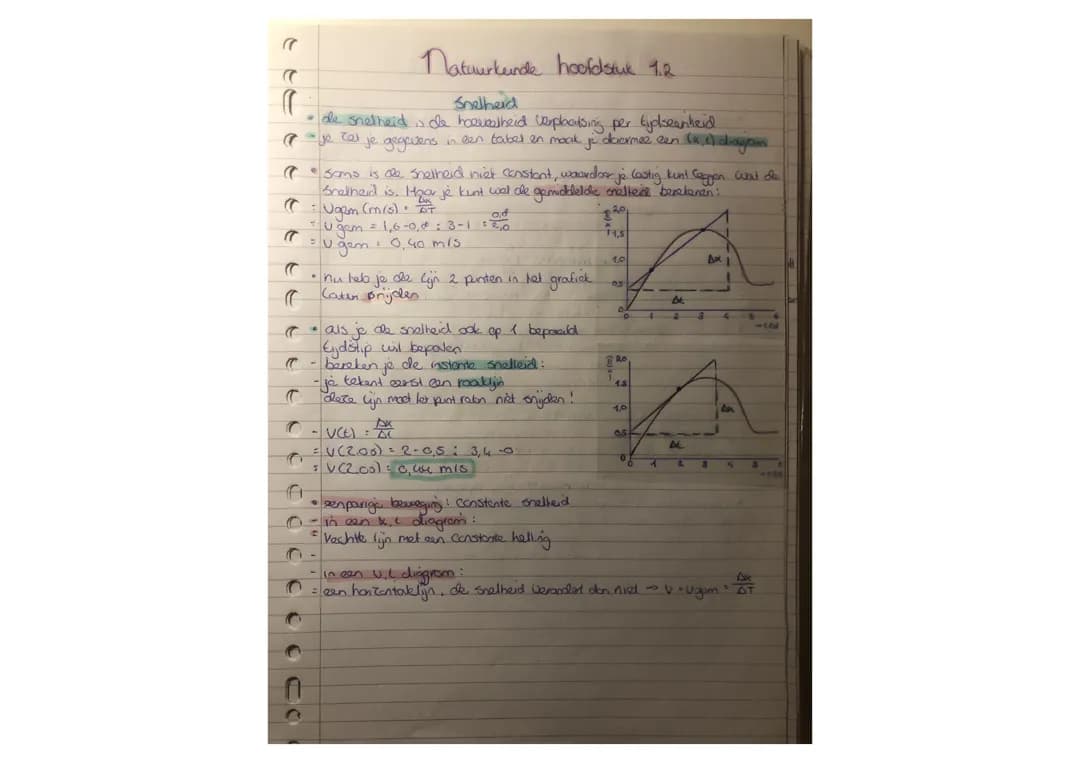 Natuurkunde hoofdstuk 1.2
Snelheid
• de snelheid is de hoeveelheid verplaatsing per tijdseenheid
- je zet je gegevens in een tabel en maak je daarmee een (x,t) diagram
• soms is de snelheid niet constant, waardoor je lastig kunt zeggen wat de
snelheid is. Maar je kunt wel de gemiddelde snelheid berekenen:
= Vgem (m/s) = Δx/ΔT
= Vgem = 1,6-0,8 : 3-1 = 0,8/2,0
= Vgem = 0,40 m/s
• nu heb je de lijn 2 punten in het grafiek
laten snijden
• als je de snelheid ook op 1 bepaald
tijdstip wil bepalen
- bereken je de instante snelheid:
- je tekent eerst een raaklijn
deze lijn moet het punt raken niet snijden!
- V(t) = Δx/Δt
= V(2,0s) = 2-0,5 : 3,4-0
= V(2,0s) = 0,44 m/s
• eenparige beweging: constante snelheid
- in een x,t diagram:
= rechte lijn met een constante helling
-
- in een v,t diagram:
= een horizontale lijn, de snelheid verandert dan niet → V = Vgem = Δx/ΔT
2,0
1,5
1,0
0,5
0
Δx
Δt
0 1 2 3 4 5 6
2,0
1,5
1,0
0,5
0
Δx
Δt
0 1 2 3 4 5